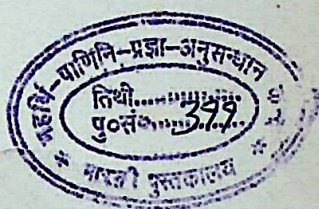 महर्षि-पाणिनि-प्रज्ञा-अनुसन्धान
तिथी..................
पु०सं०.....399.....
* पुस्तकालय *